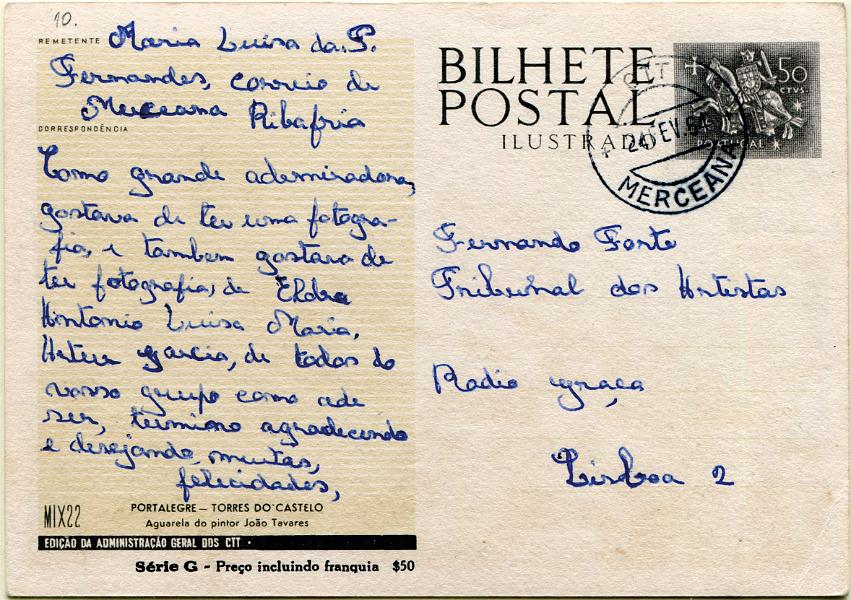 10.
REMETENTE Maria Luisa da. P.
Fernandes, correio de
Merceana Ribafria
CORRESPONDÊNCIA
Como grande adermiradora,
gostava de ter uma fotogra-
fia, e tambem gostava de
ter fotografia, de Eldra
Antonio Luisa Maria,
garcia, de todos do
vosso grupo como
ser, termino agradecendo
e desejando muitas,
felicidades,
MIX22
PORTALEGRE — TORRES DO CASTELO
Aguarela do pintor João Tavares
EDIÇÃO DA ADMINISTRAÇÃO GERAL DOS CTT •
Série G - Preço incluindo franquia $50
BILHETE
POSTAL
ILUSTRADO
50
CTVS.
PORTUGAL
CTT
24 FEV. 54
MERCEANA
Fernando Forte
Tribunal dos Artistas
Radio graça
Lisboa 2